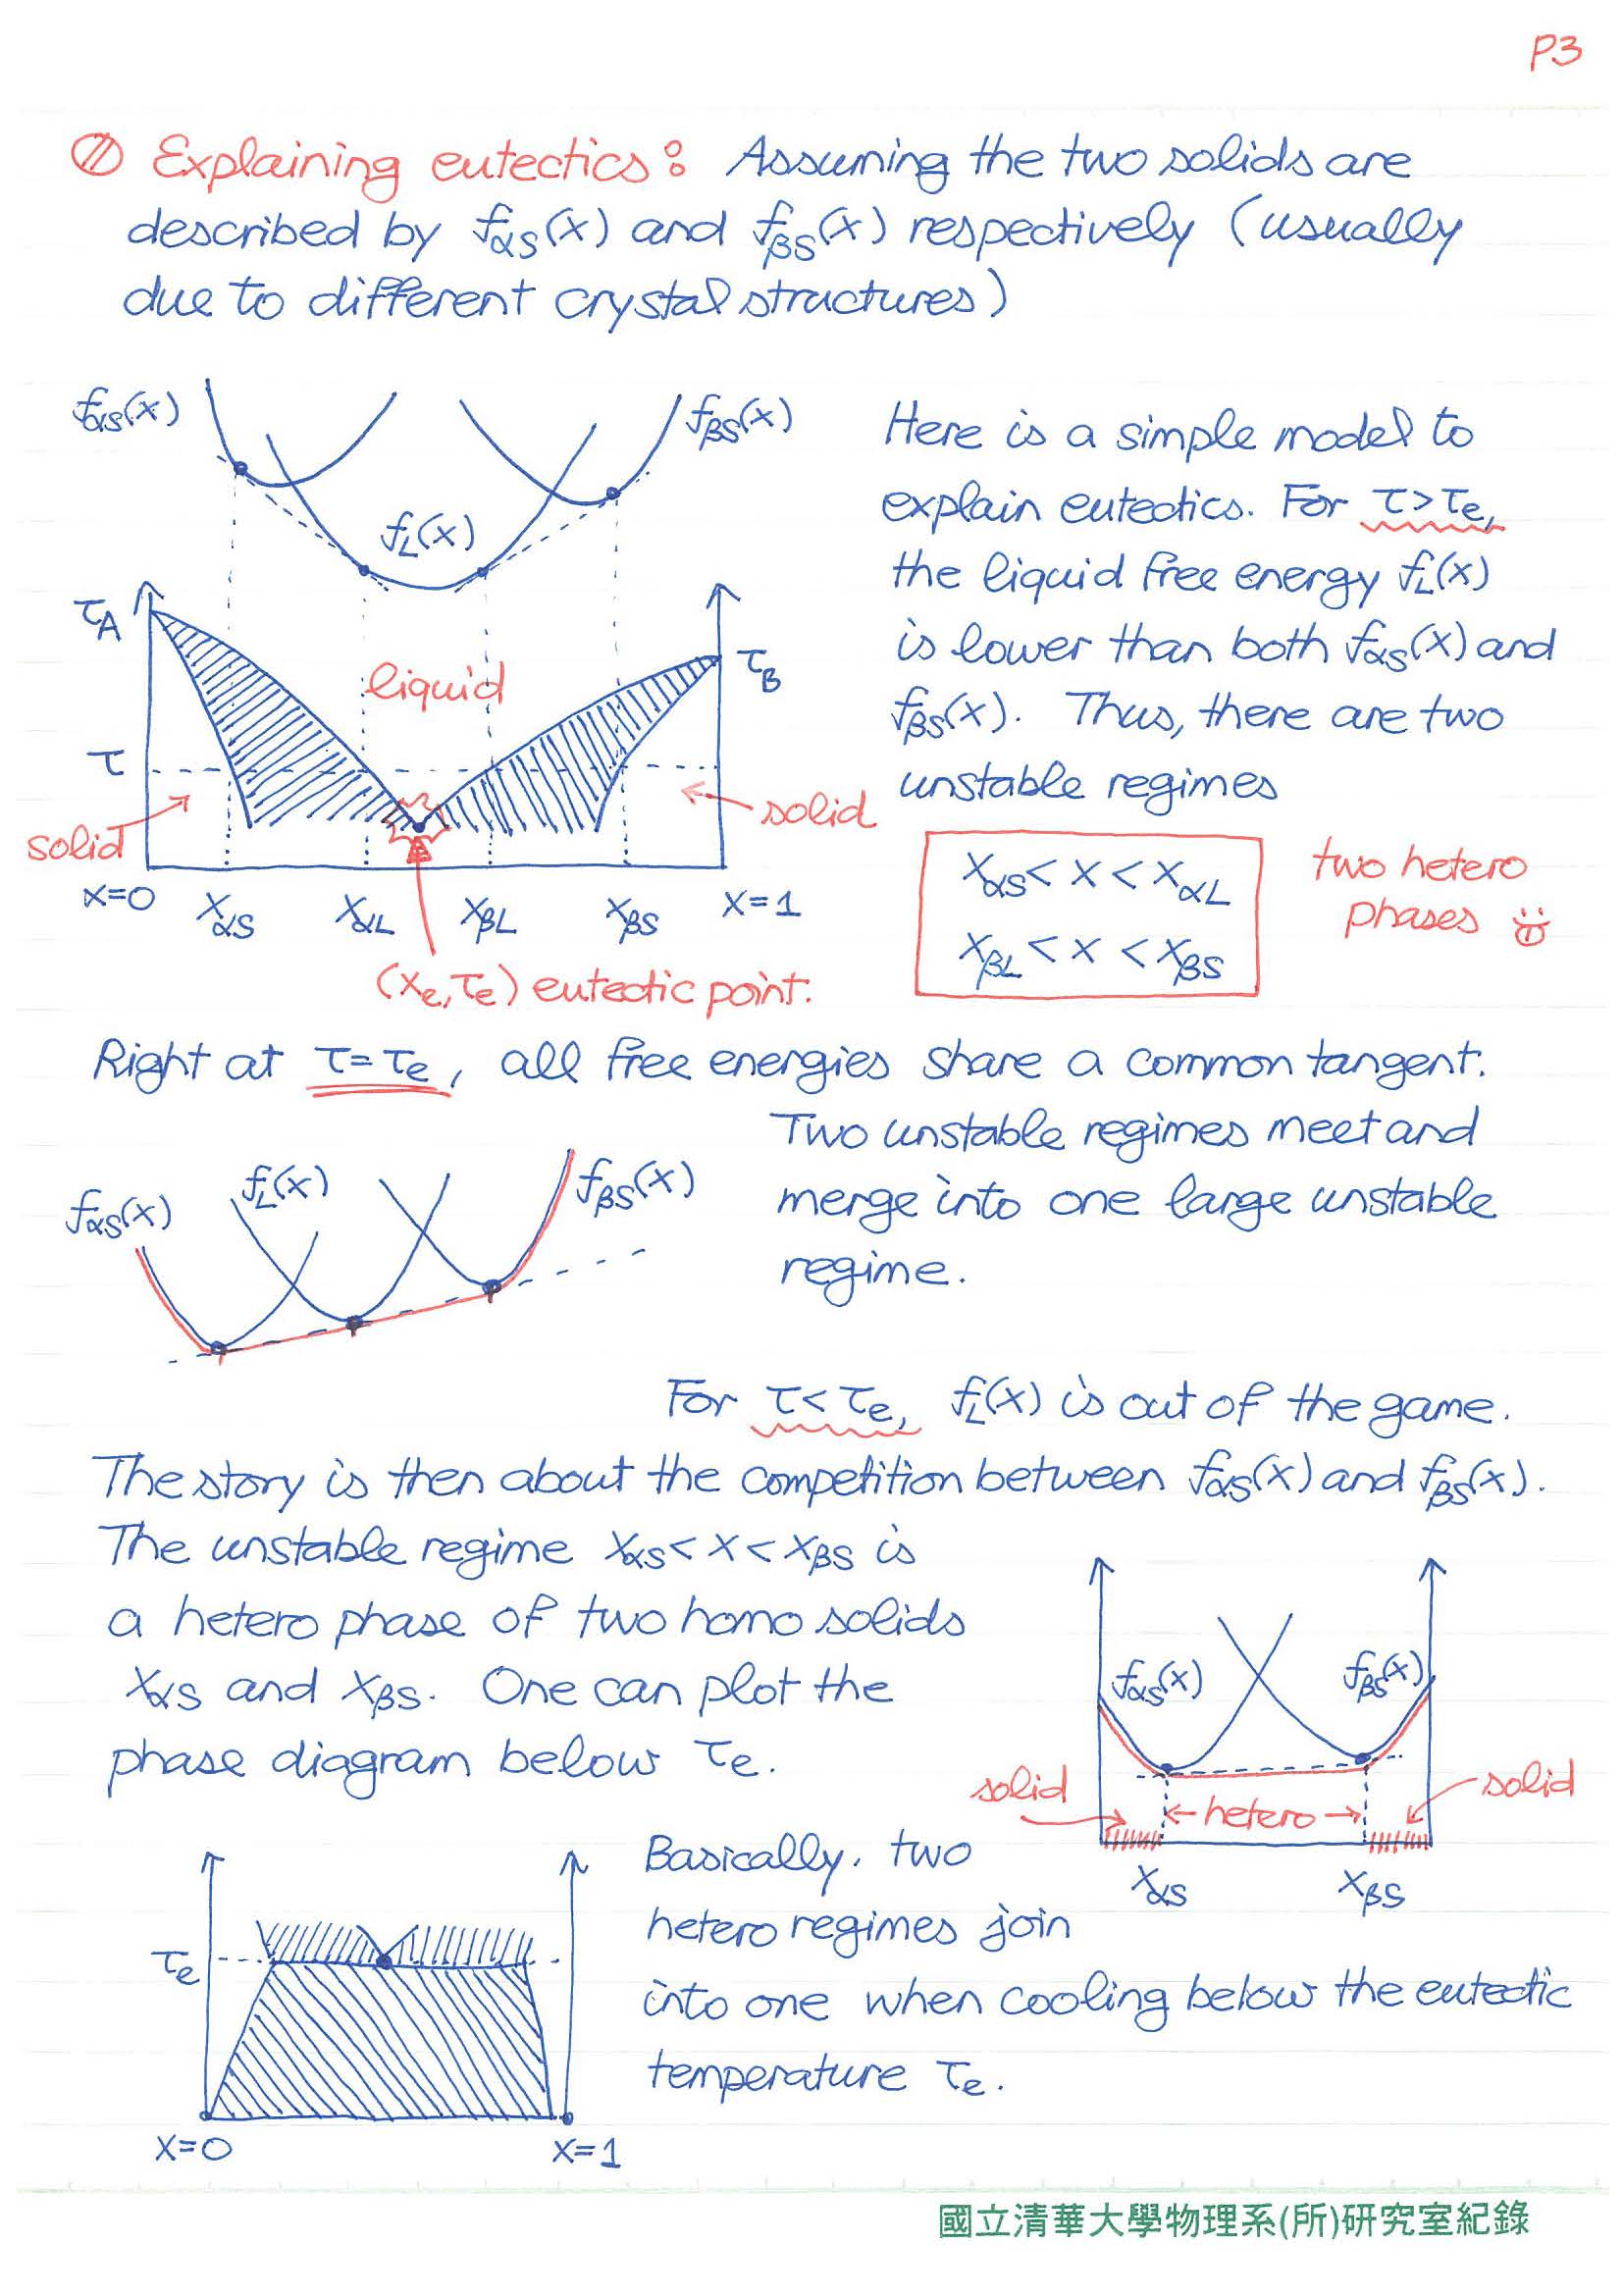 P3
Explaining eutectics: Assuming the two solids are
described by f_αS(x) and f_βS(x) respectively (usually
due to different crystal structures)
f_αS(x)
f_βS(x)
f_L(x)
τ_A
liquid
τ_B
τ
solid
solid
x=0 x_αS x_αL x_βL x_βS x=1
(x_e, τ_e) eutectic point.
Here is a simple model to
explain eutectics. For τ>τ_e,
the liquid free energy f_L(x)
is lower than both f_αS(x) and
f_βS(x). Thus, there are two
unstable regimes
x_αS < x < x_αL
x_βL < x < x_βS
two hetero
phases
Right at τ=τ_e, all free energies share a common tangent.
Two unstable regimes meet and
merge into one large unstable
regime.
f_αS(x)
f_L(x)
f_βS(x)
For τ<τ_e, f_L(x) is out of the game.
The story is then about the competition between f_αS(x) and f_βS(x).
The unstable regime x_αS < x < x_βS is
a hetero phase of two homo solids
x_αS and x_βS. One can plot the
phase diagram below τ_e.
f_αS(x)
f_βS(x)
solid
←hetero→
solid
x_αS
x_βS
τ_e
x=0
x=1
Basically, two
hetero regimes join
into one when cooling below the eutectic
temperature τ_e.
國立清華大學物理系(所)研究室紀錄